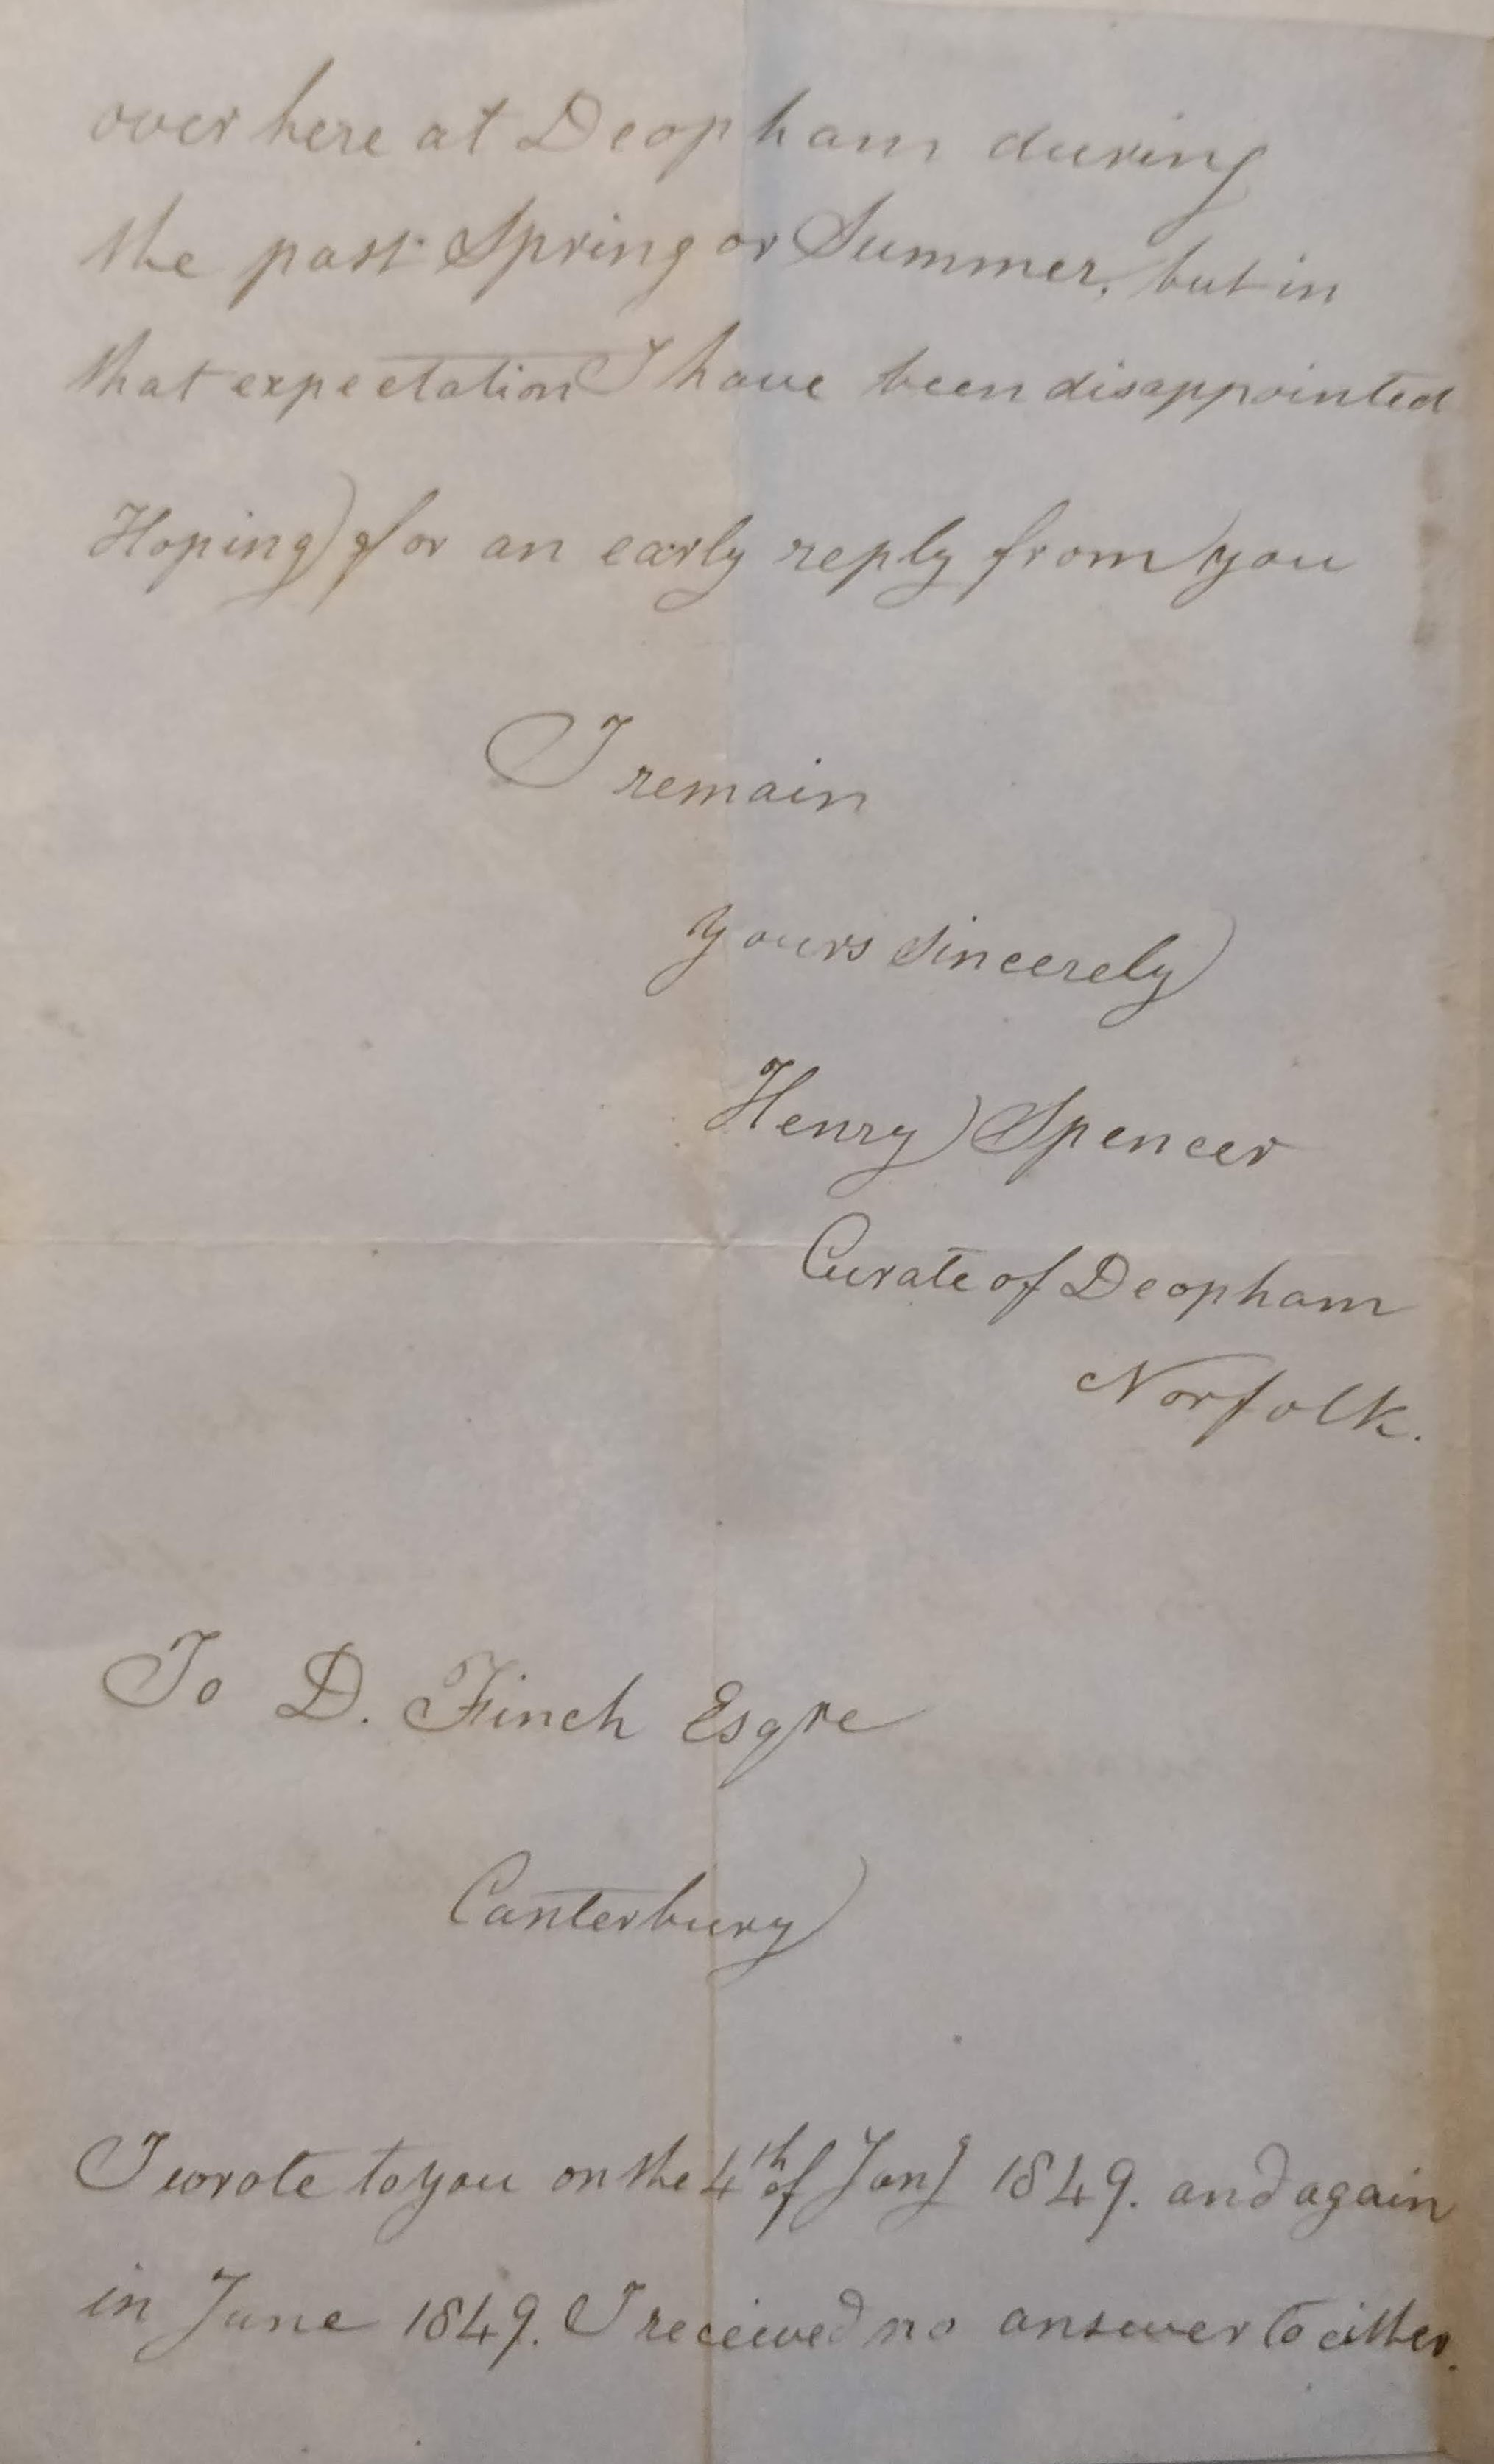 over here at Deopham during
the past Spring or Summer, but in
that expectation I have been disappointed
Hoping for an early reply from you
I remain
yours sincerely
Henry Spencer
Curate of Deopham
Norfolk.
To D. Finch Esqre
Canterbury
I wrote to you on the 4th of Jany 1849. and again
in June 1849. I received no answer to either.